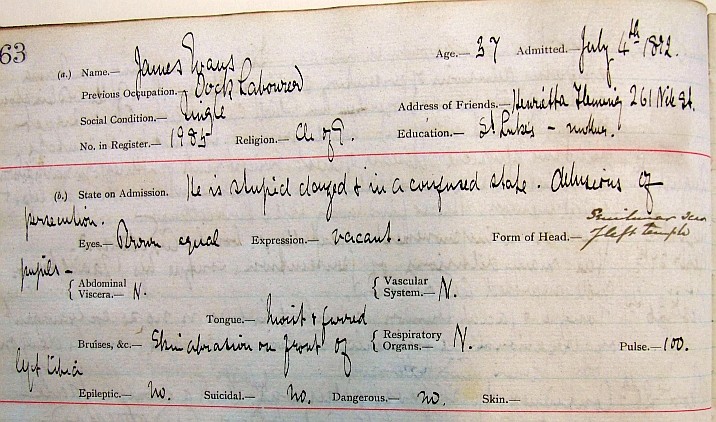 63
(a.) Name.— James Evans Age.— 37 Admitted.— July 4th 1892.
Previous Occupation.— Dock Labourer
Social Condition.— Single Address of Friends.— Henrietta Fleming 261 Nile St.
No. in Register.— 1985 Religion.— Ch of E. Education.— St Luke's – mother.
(b.) State on Admission. He is stupid dazed & in a confused state. Delusions of
persecution.
Eyes.— Brown equal Expression.— vacant. Form of Head.— Semilunar scar
pupils – of left temple
{ Abdominal Viscera.— N. { Vascular System.— N.
Tongue.— Moist & furred
Bruises, &c.— Skin abrasion on front of { Respiratory Organs.— N. Pulse.— 100.
left tibia
Epileptic.— No. Suicidal.— No. Dangerous.— No. Skin.—